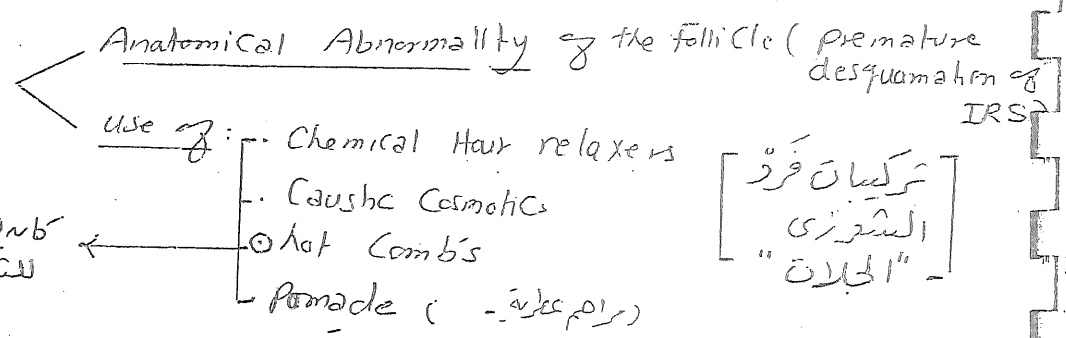 Anatomical Abnormality of the follicle ( premature
desquamation of
IRS)
use of :
. Chemical Hair relaxers
. Caustic Cosmotics
hot Combs
Pomade ( مراهم عطرية - )
[ تركيبات فَرْد
الشعر زى
"الجلات " - ]